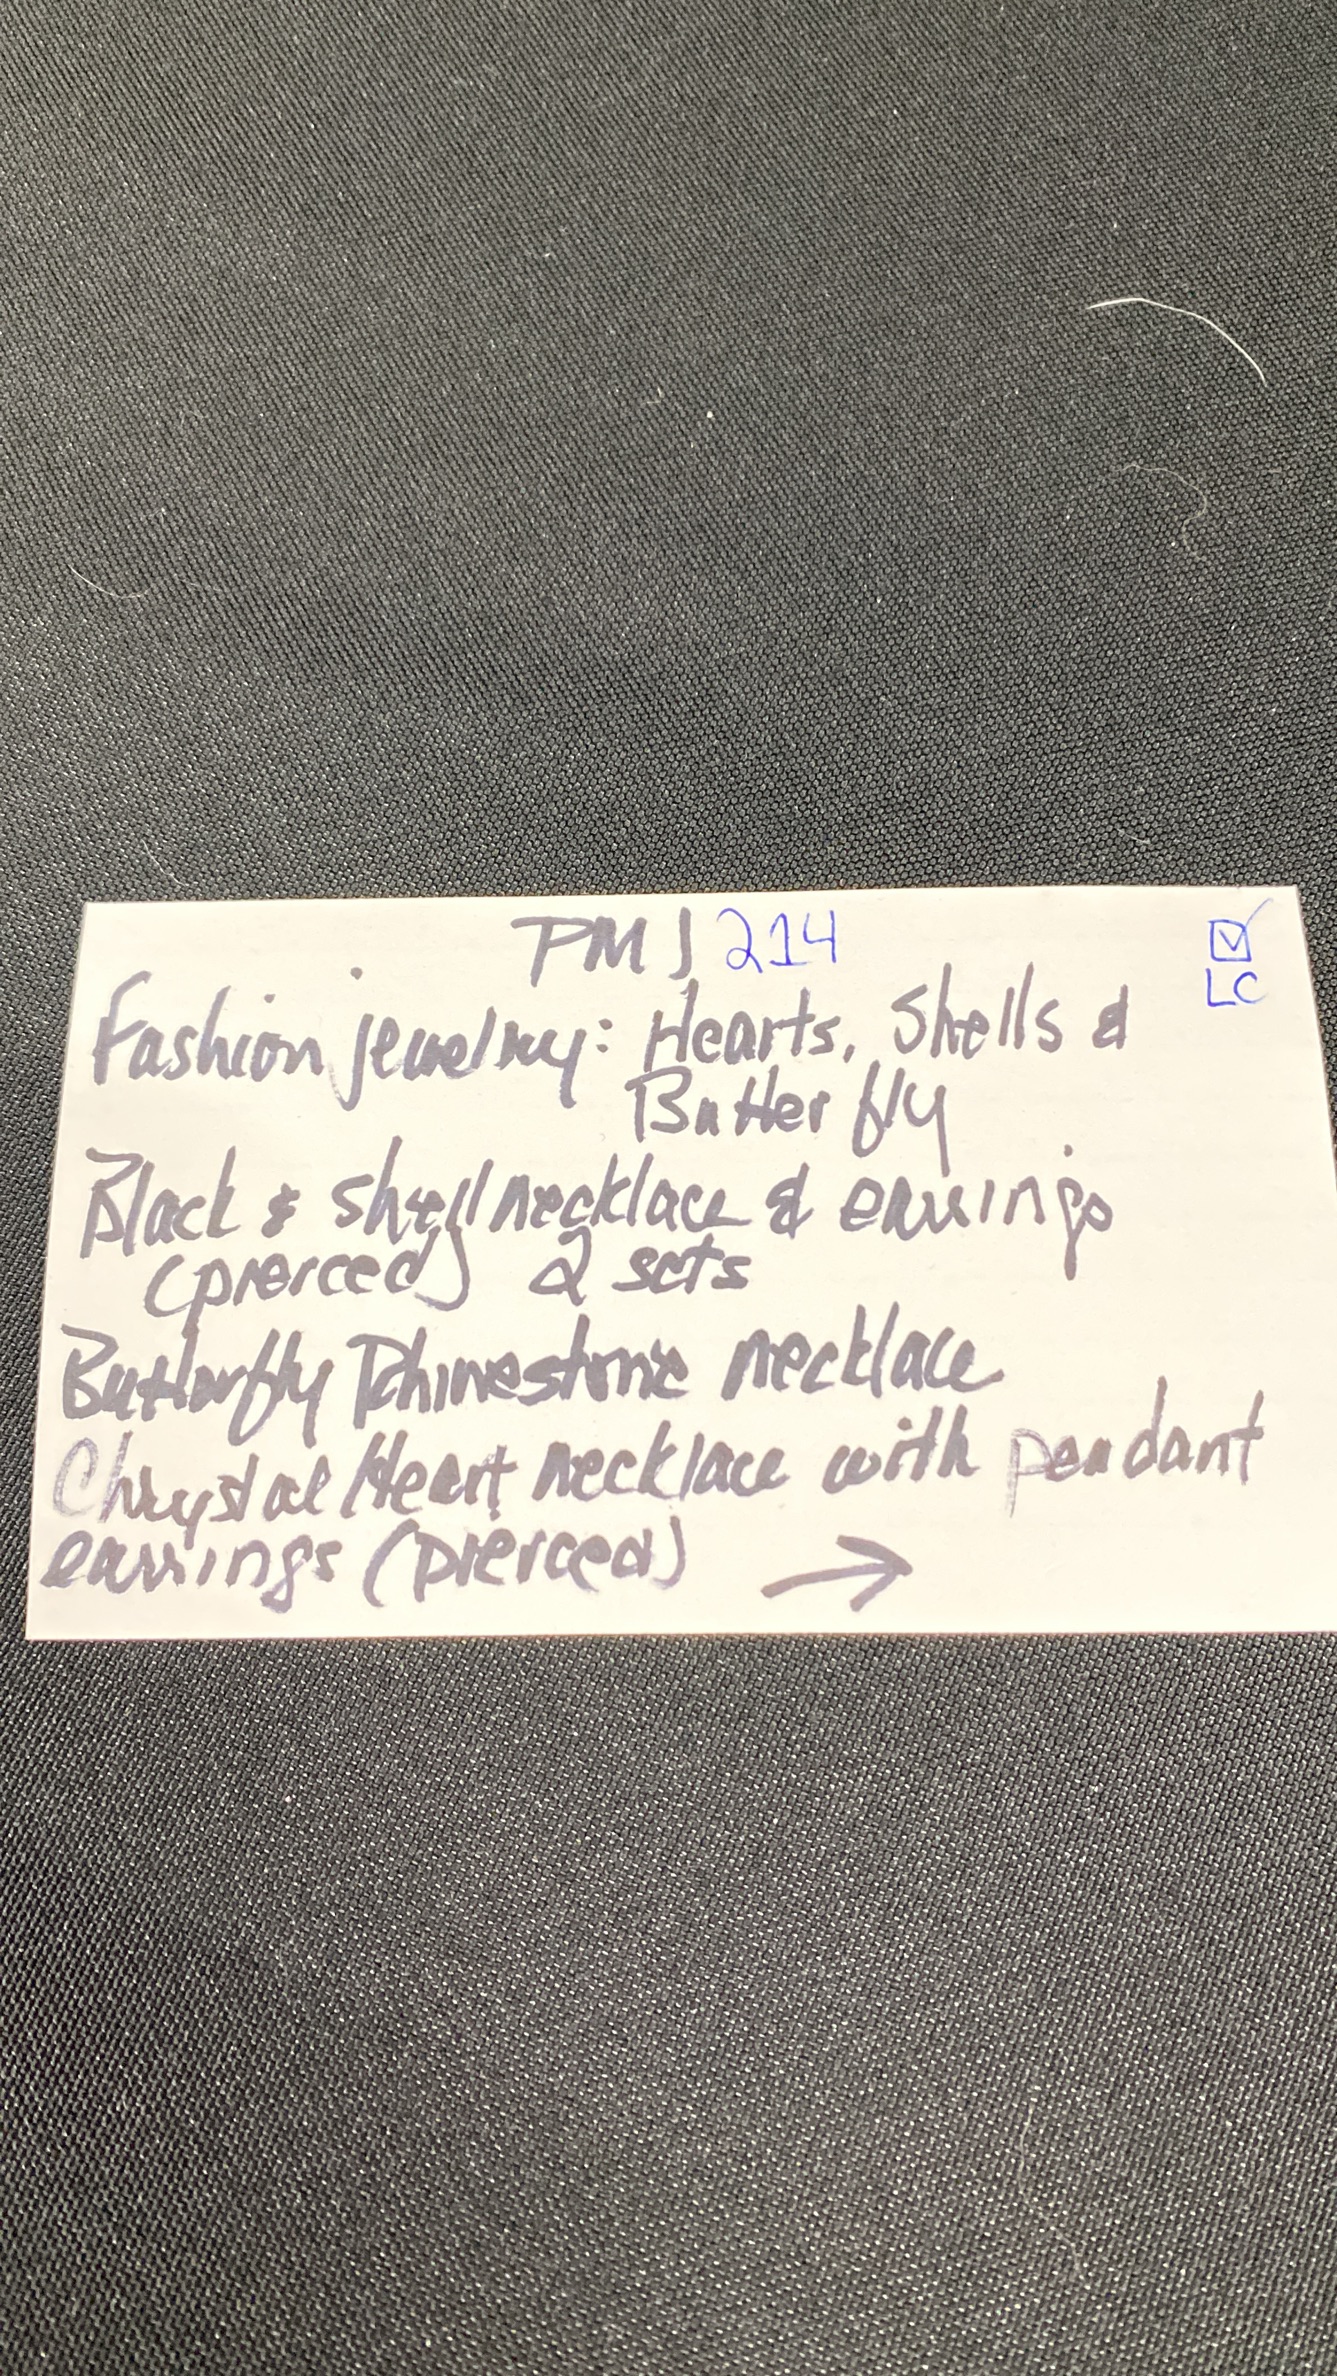 PMJ 214
☑
LC
Fashion jewelry: Hearts, Shells &
Butterfly
Black & shell necklace & earrings
(pierced) 2 sets
Butterfly Rhinestone necklace
Chrystal Heart necklace with pendant
earrings (pierced) →